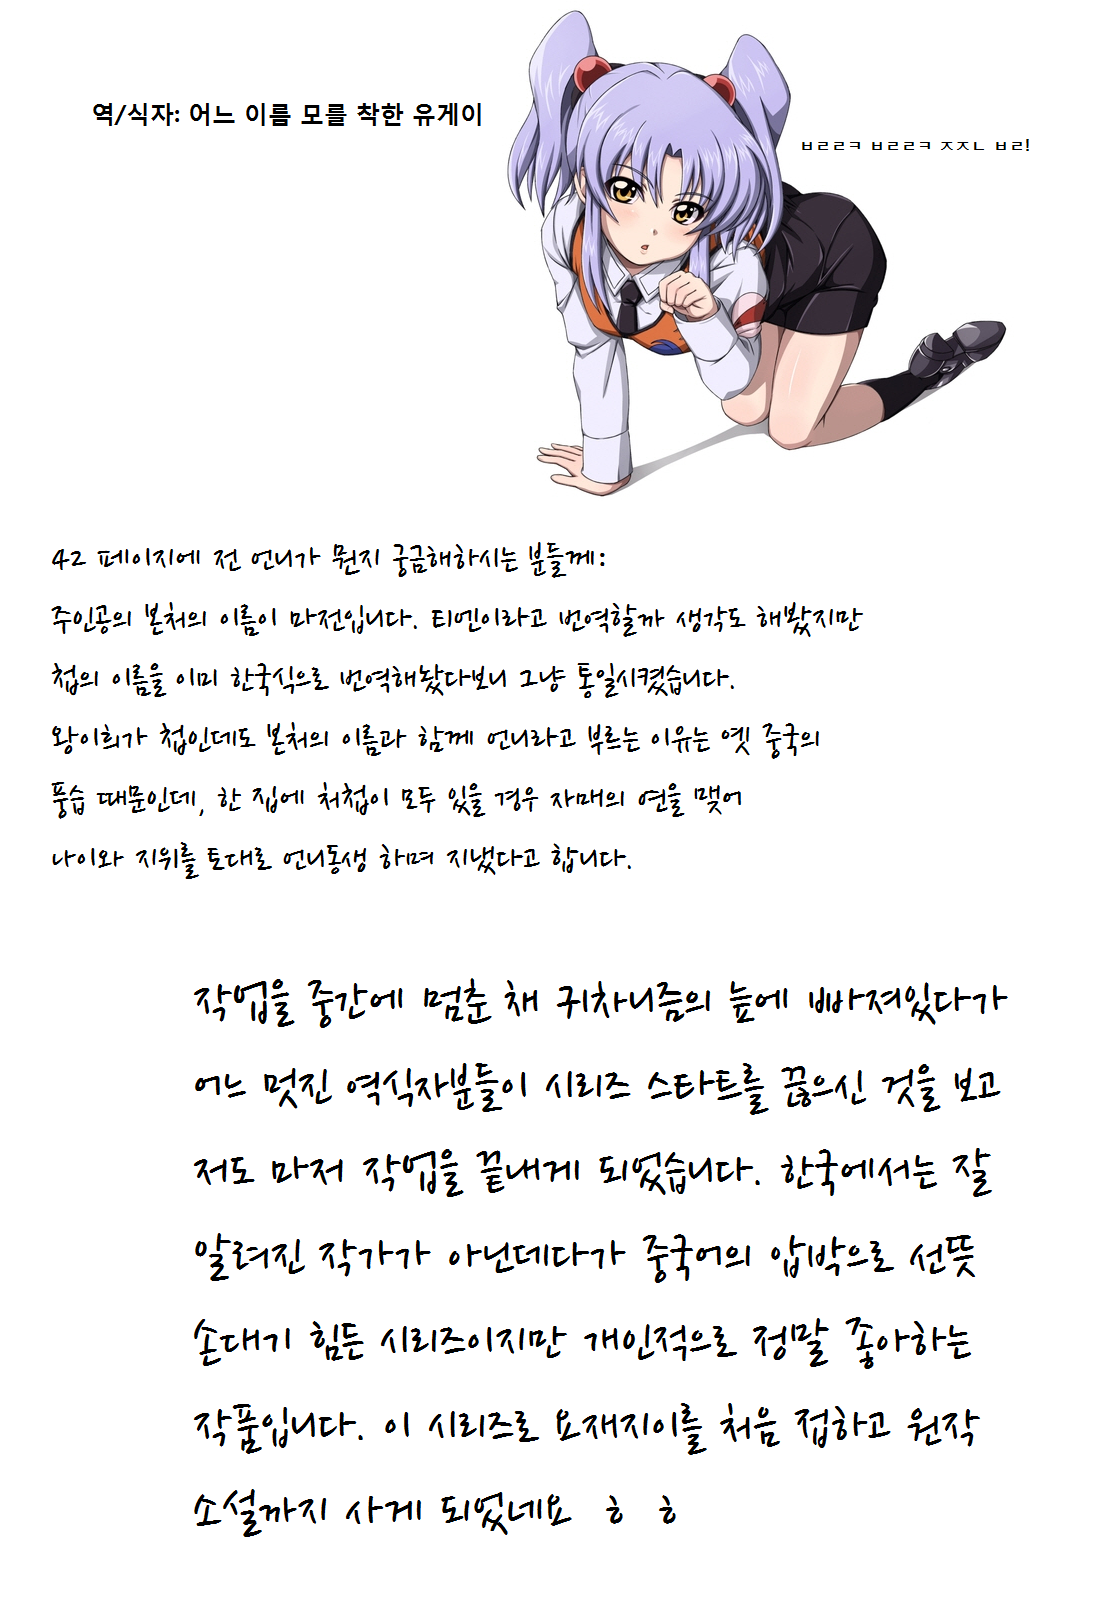 역/식자: 어느 이름 모를 착한 유게이
ㅂㄹㄹㅋ ㅂㄹㄹㅋ ㅈㅈㄴ ㅂㄹ!
42 페이지에 전 언니가 뭔지 궁금해하시는 분들께:
주인공의 본처의 이름이 마전입니다. 티엔이라고 번역할까 생각도 해봤지만
첩의 이름을 이미 한국식으로 번역해놨다보니 그냥 통일시켰습니다.
왕이희가 첩인데도 본처의 이름과 함께 언니라고 부르는 이유는 옛 중국의
풍습 때문인데, 한 집에 처첩이 모두 있을 경우 자매의 연을 맺어
나이와 지위를 토대로 언니동생 하며 지냈다고 합니다.
작업을 중간에 멈춘 채 귀차니즘의 늪에 빠져있다가
어느 멋진 역식자분들이 시리즈 스타트를 끊으신 것을 보고
저도 마저 작업을 끝내게 되었습니다. 한국에서는 잘
알려진 작가가 아닌데다가 중국어의 압박으로 선뜻
손대기 힘든 시리즈이지만 개인적으로 정말 좋아하는
작품입니다. 이 시리즈로 요재지이를 처음 접하고 원작
소설까지 사게 되었네요 ㅎ ㅎ